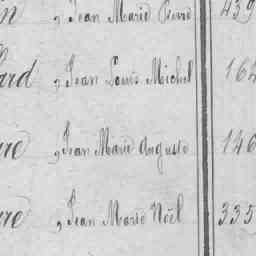 n , Jean Marie Pierre 439
ard , Jean Louis Michel 164
re , Jean Marie Auguste 146
re , Jean Marie Noël 335